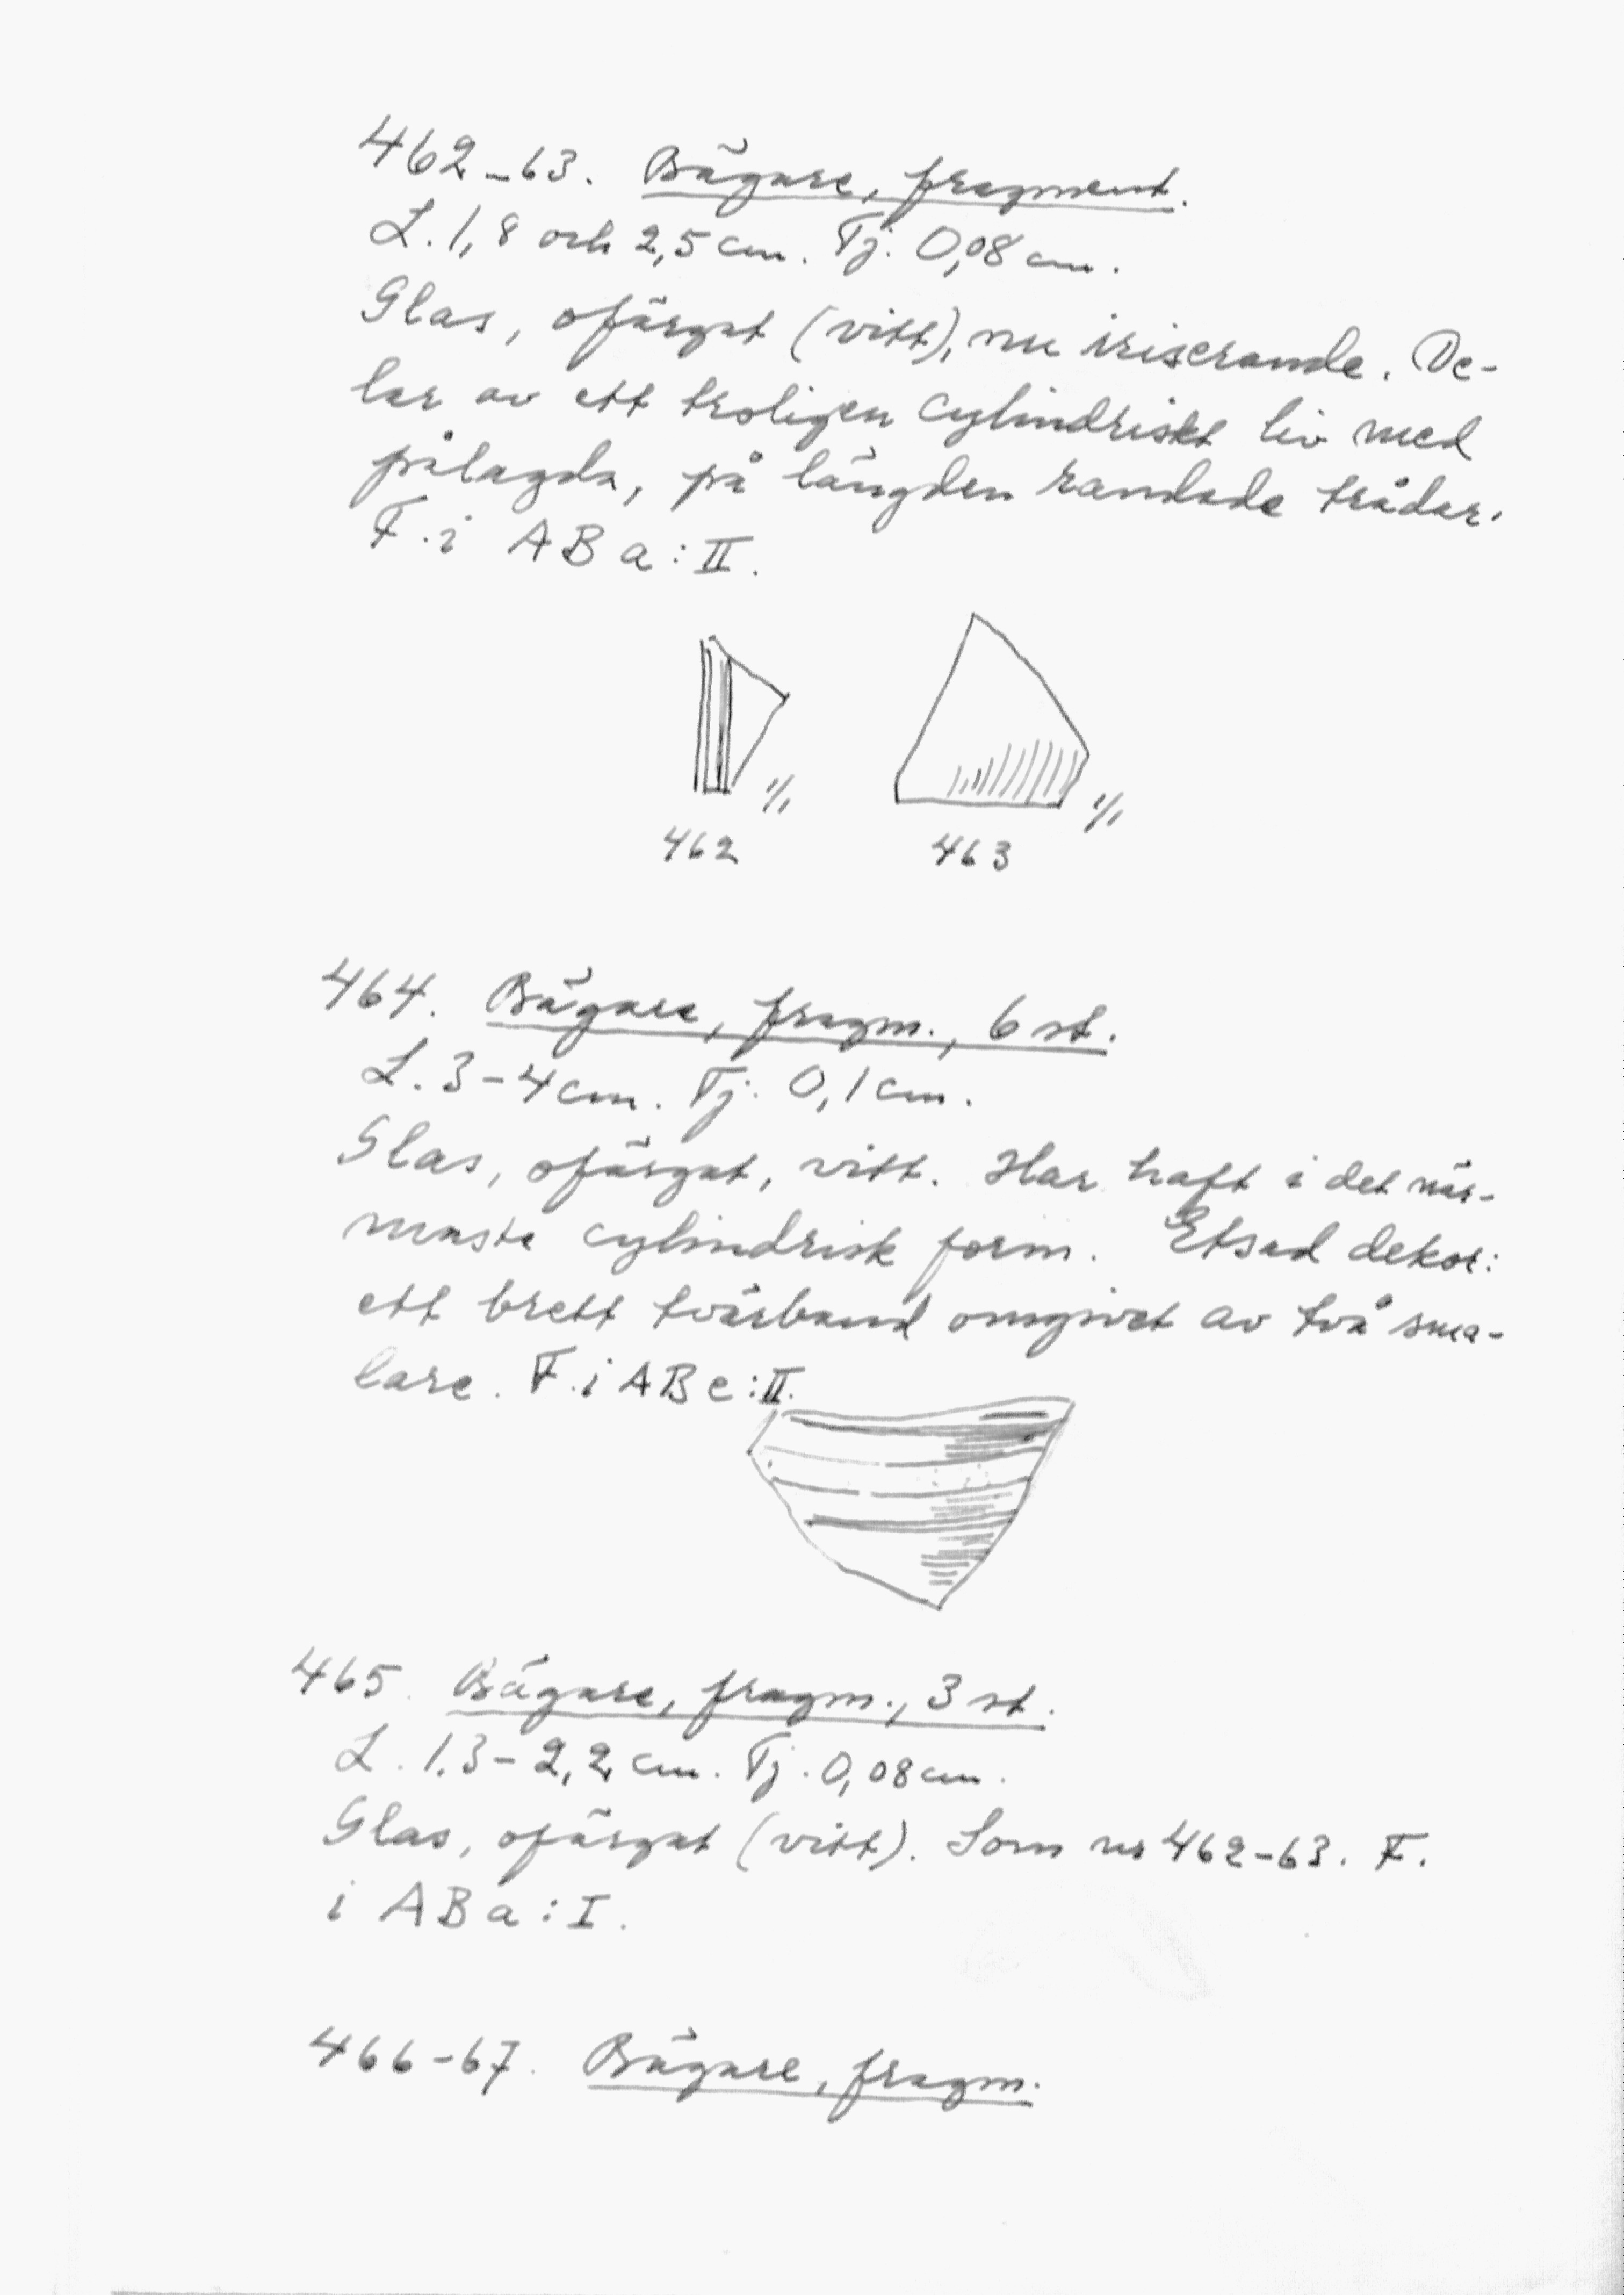 462-63. Bägare, fragment.
L. 1,8 och 2,5 cm. Tj. 0,08 cm.
Glas, ofärgat (vitt), nu iriserande. De-
lar av ett troligen cylindriskt liv med
pålagda, på längden randade trådar.
F. i A B a : II.
1/1
1/1
462
463
464. Bägare, fragm., 6 st.
L. 3-4 cm. Tj. 0,1 cm.
Glas, ofärgat, vitt. Har haft i det när-
maste cylindrisk form. Etsad dekor:
ett brett tvärband omgivet av två sma-
lare. F. i A B e : II.
465. Bägare, fragm., 3 st.
L. 1,3-2,2 cm. Tj. 0,08 cm.
Glas, ofärgat (vitt). Som nr 462-63. F.
i A B a : I.
466-67. Bägare, fragm.